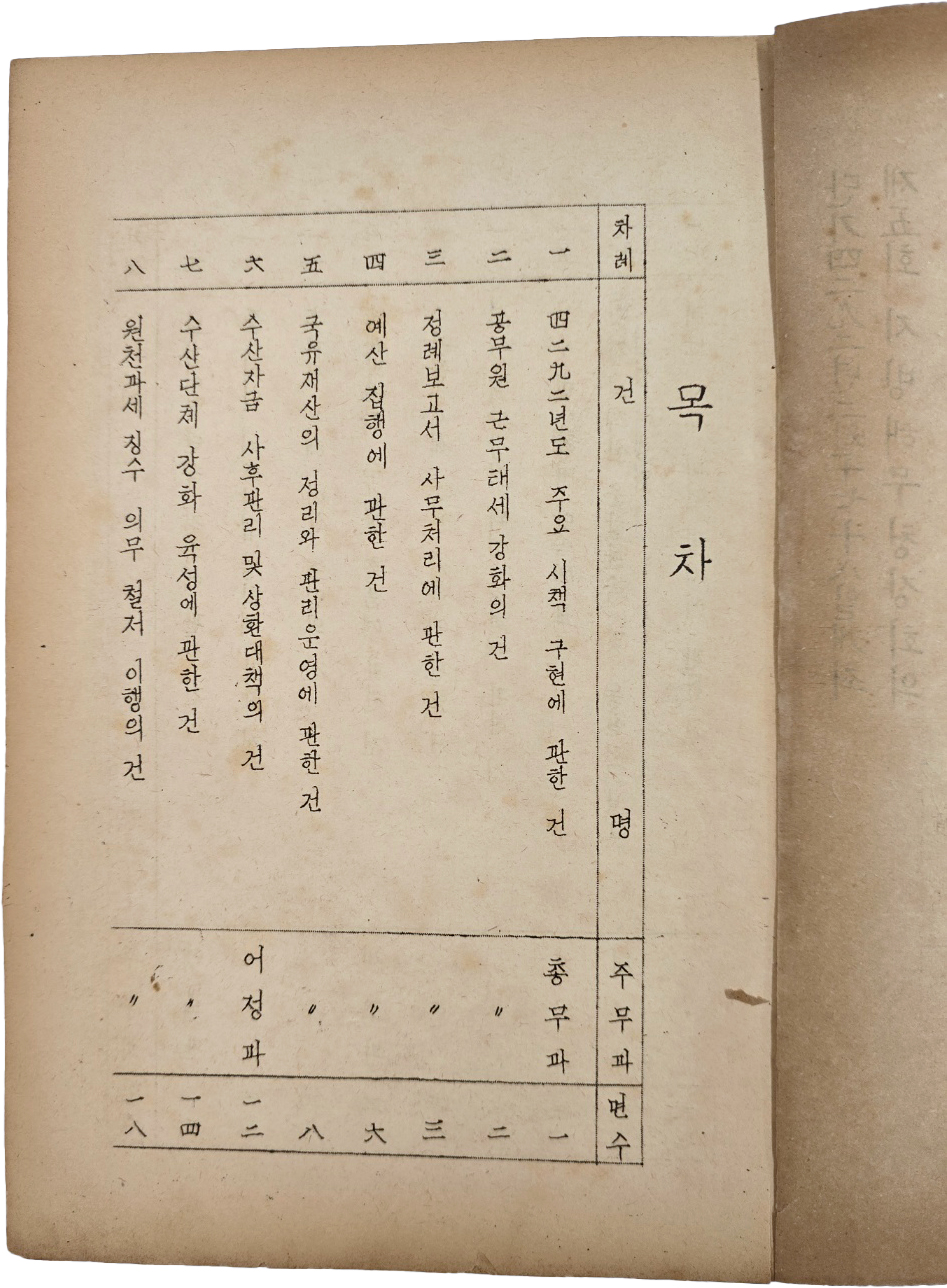 목차
차례 건명 주무과 면수
一 四二九二년도 주요 시책 구현에 관한 건 총무과 一
二 공무원 근무태세 강화의 건 〃 二
三 정례보고서 사무처리에 관한 건 〃 三
四 예산 집행에 관한 건 〃 六
五 국유재산의 정리와 관리운영에 관한 건 〃 八
六 수산자금 사후관리 및 상환대책의 건 어정과 一二
七 수산단체 강화 육성에 관한 건 〃 一四
八 원천과세 징수 의무 철저 이행의 건 〃 一八